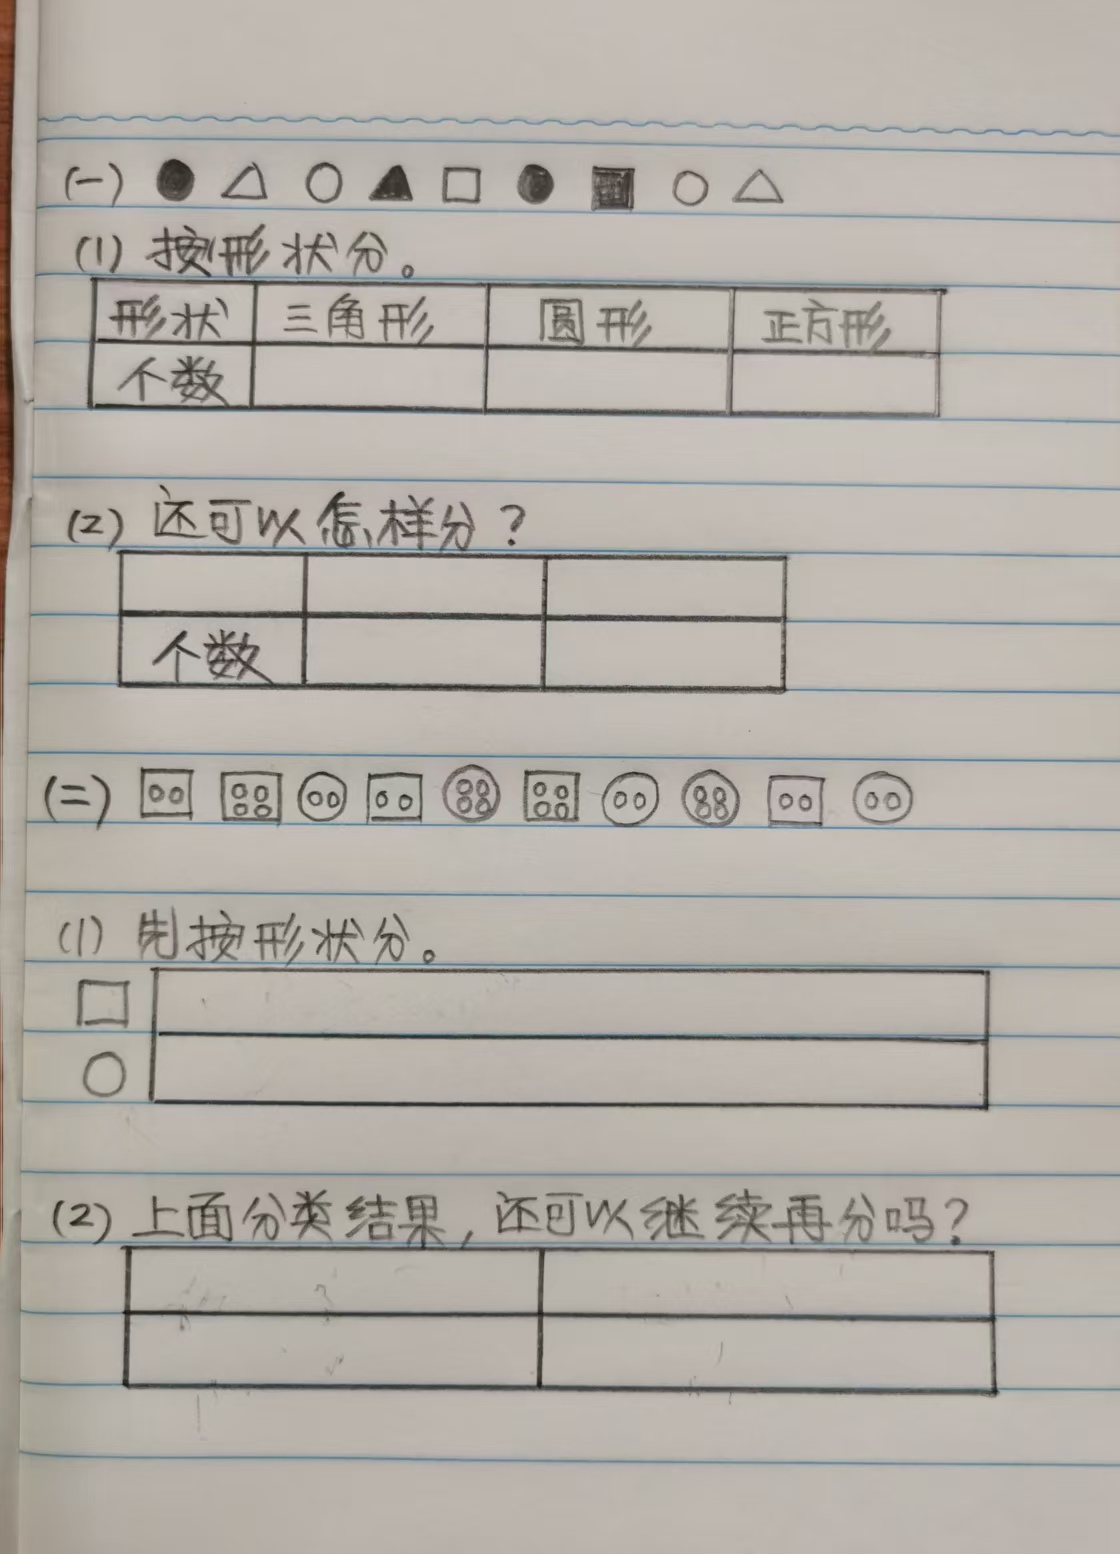 (一)
(1) 按形状分。
形状 三角形 圆形 正方形
个数
(2) 还可以怎样分?
个数
(二)
(1) 先按形状分。
(2) 上面分类结果,还可以继续再分吗?